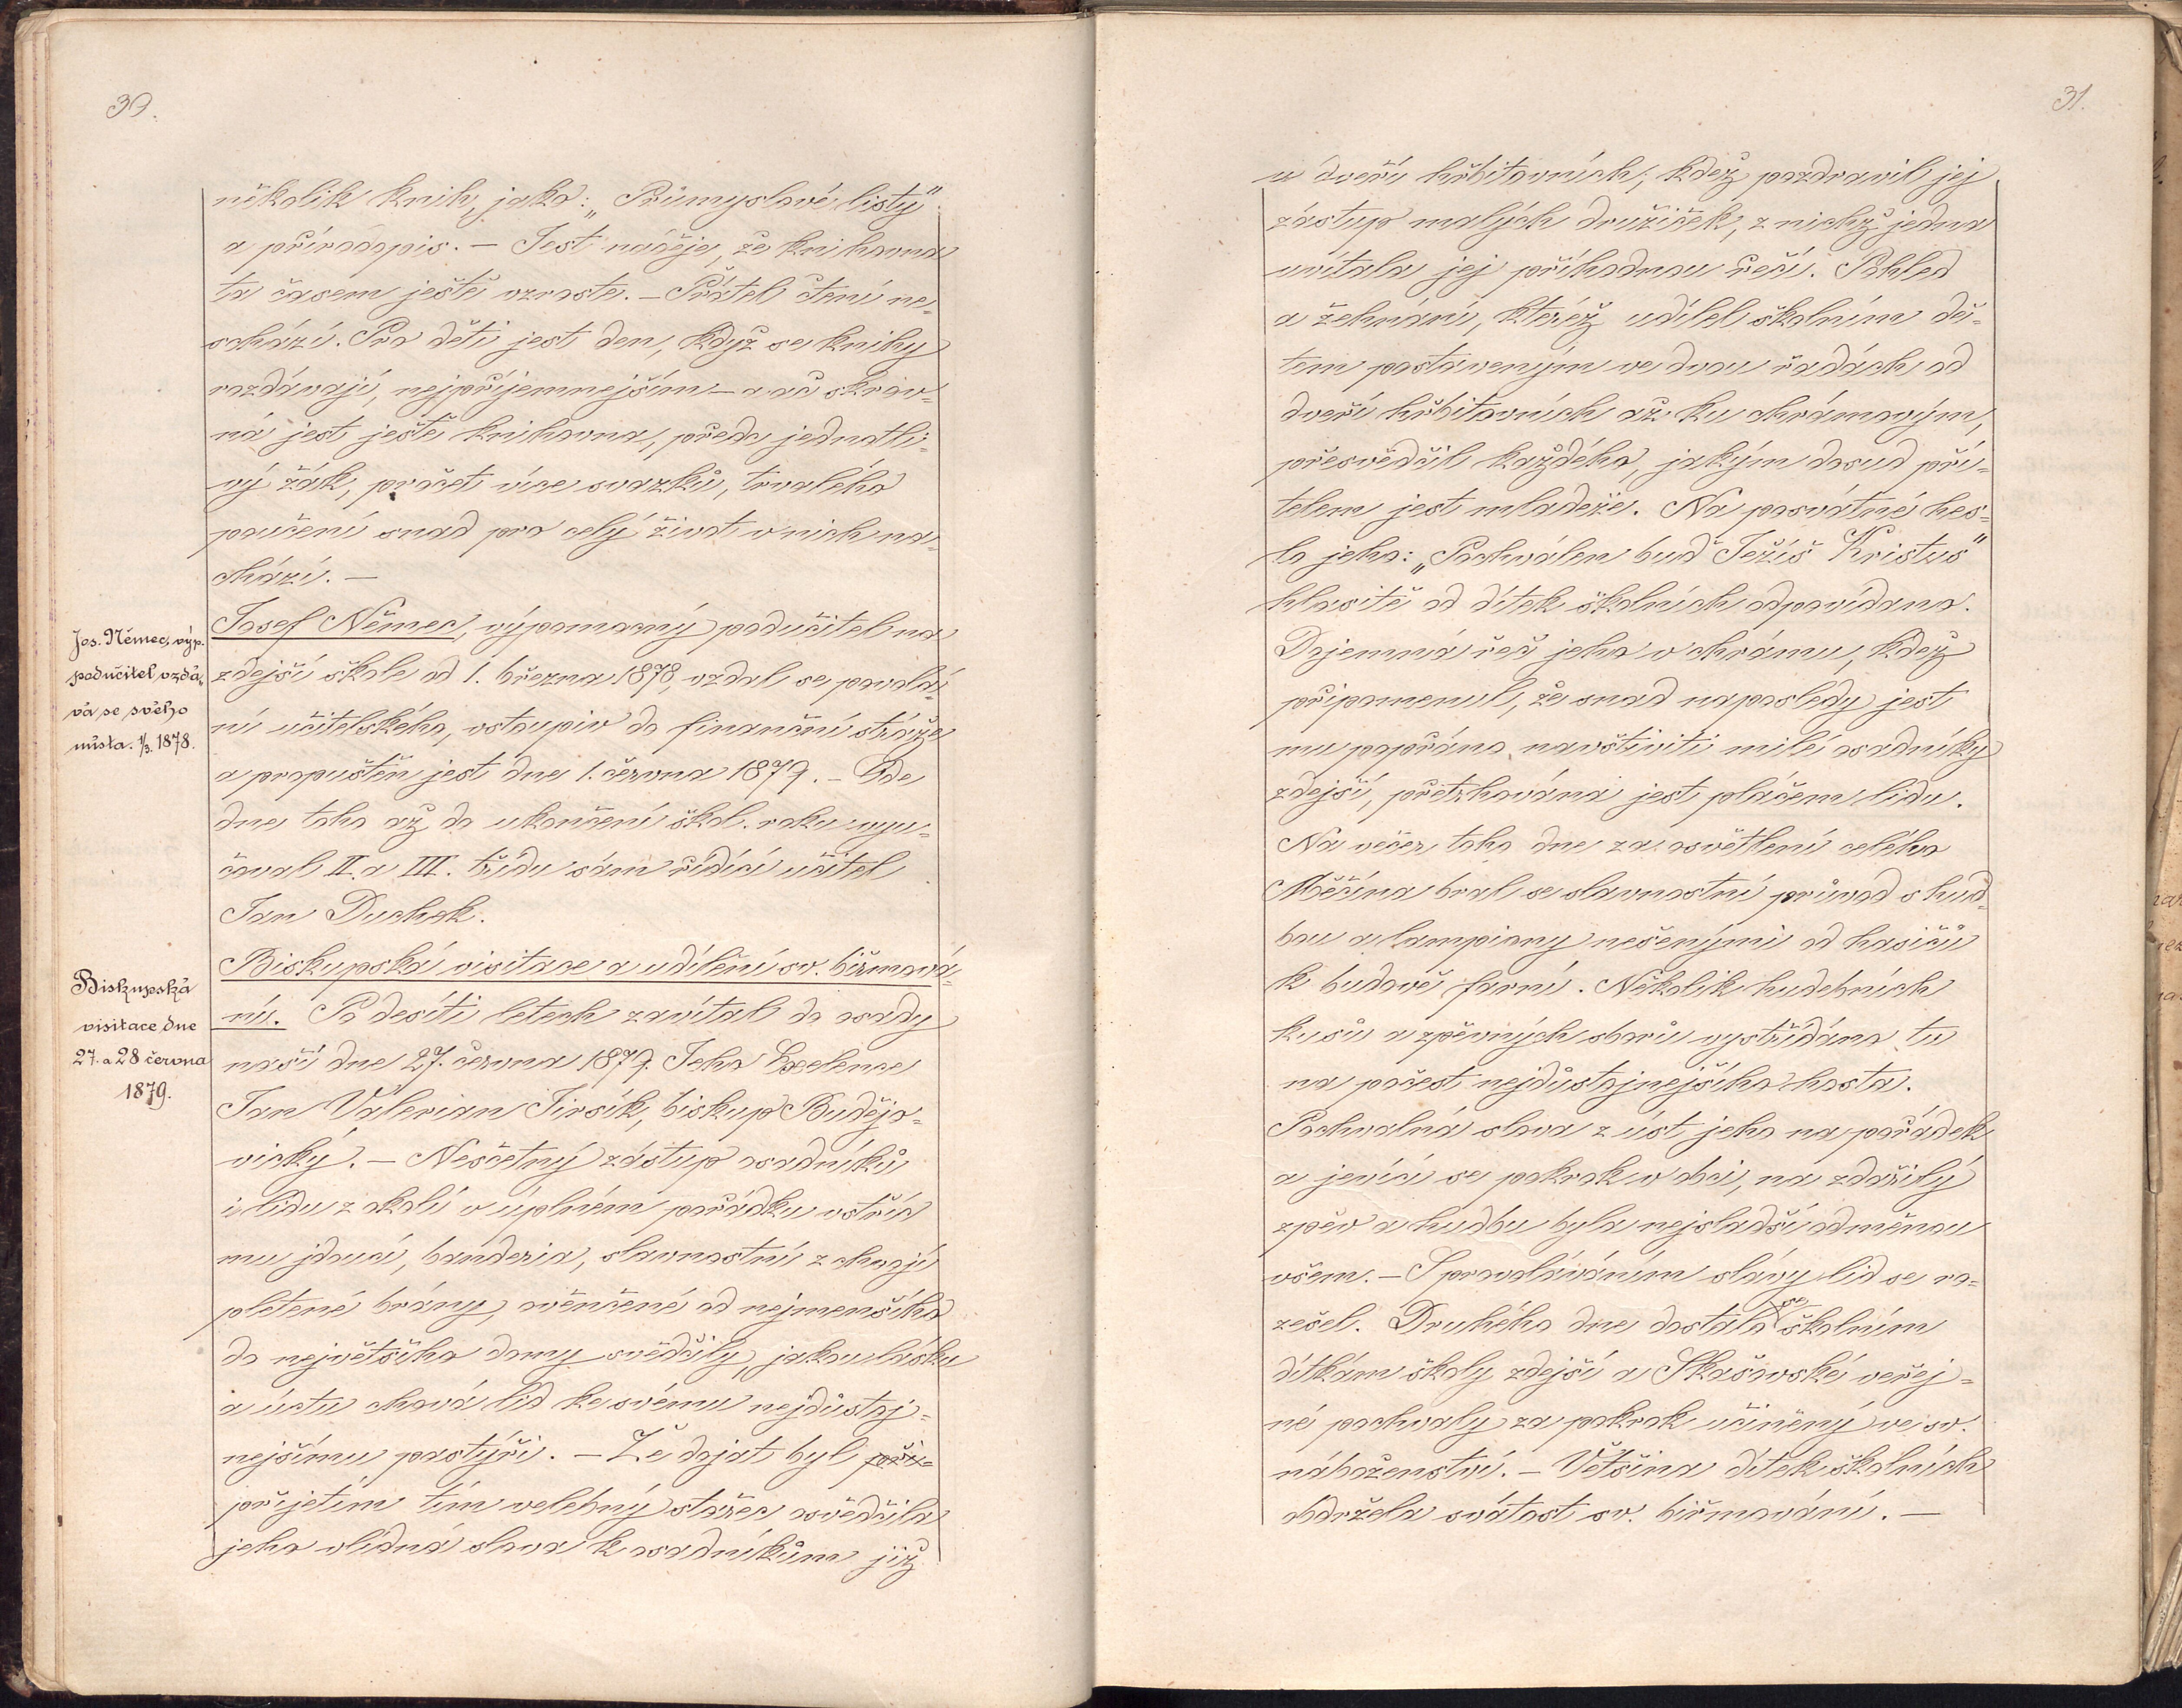 30.
několik knih, jako: „Průmyslové listy"
a přírodopis. – Jest náděje, že knihovna
ta časem ještě vzroste. – Přátel čtení ne„
schází. Pro děti jest den, když se knihy
rozdávají, nejpříjemnejším – a ač skrov„
ná jest ještě knihovna, předc jednotli„
vý žák, pročet více svazků, trvalého
poučení snad pro celý život v nich na„
chází. –
Jos. Němec, výp.
podučitel, vzdá„
vá se svého
místa. 1/3. 1878.
Josef Němec, výpomocný podučitel na
zdejší škole od 1. března 1878, vzdal se povolá„
ní učitelského, vstoupiv do finanční stráže
a propuštěn jest dne 1. června 1879. – Ode
dne toho až do ukončení škol. roku vyu„
čoval II. a III. třídu sám řídící učitel
Jan Duchek.
Biskupská
visitace dne
27. a 28 června
1879.
Biskupská visitace a udílení sv. biřmová„
ní. Po desíti letech zavítal do osady
naší dne 27. června 1879. Jeho Excelence
Jan Valerian Jirsík, biskup Budějo„
vický. – Nesčetný zástup osadníků
i lidu z okolí v úplném pořádku vstříc
mu jdoucí, banderia, slavnostní z chvojí
pletené brány, ověnčené od nejmenšího
do největšího domy svědčily, jakou lásku
a úctu chová lid ke svému nejdůstoj„
nejšímu pastýři. – Že dojat byl
přijetím tím velebný stařec osvědčila
jeho vlídná slova k osadníkům již
31.
u dveří hřbitovních; kdež pozdravil jej
zástup malých družiček, z nichž jedna
uvítala jej příhodnou řečí. Pohled
a žehnání, kteréž udílel školním dě„
tem postaveným ve dvou řadách od
dveří hřbitovních až ku chrámovým,
přesvědčil každého, jakým dosud pří„
telem jest mládeže. Na posvátné hes„
lo jeho: „Pochválen buď Ježíš Kristus"
hlasitě od dítek školních odpovídáno.
Dojemná řeč jeho v chrámu, kdež
připomenul, že snad naposledy jest
mu popřáno navštíviti milé osadníky
zdejší, přetrhována jest pláčem lidu.
Na večer toho dne za osvětlení celého
Měčína bral se slavnostní průvod s hud„
bou a lampiony nešenými od hasičů
k budově farní. Několik hudebních
kusů a zpěvných sborů vystřídáno tu
na počest nejdůstojnejšího hosta.
Pochvalná slova z úst jeho na pořádek
a jevící se pokrok v obci, na zdařilý
zpěv a hudbu byla nejsladší odměnou
všem. – S provoláváním slávy lid se ro„
zešel. Druhého dne dostalo se školním
dítkám školy zdejší a Skašovské veřej„
né pochvaly za pokrok učiněný ve sv.
náboženství. – Většina dítek školních
obdržela svátost sv. biřmování. –